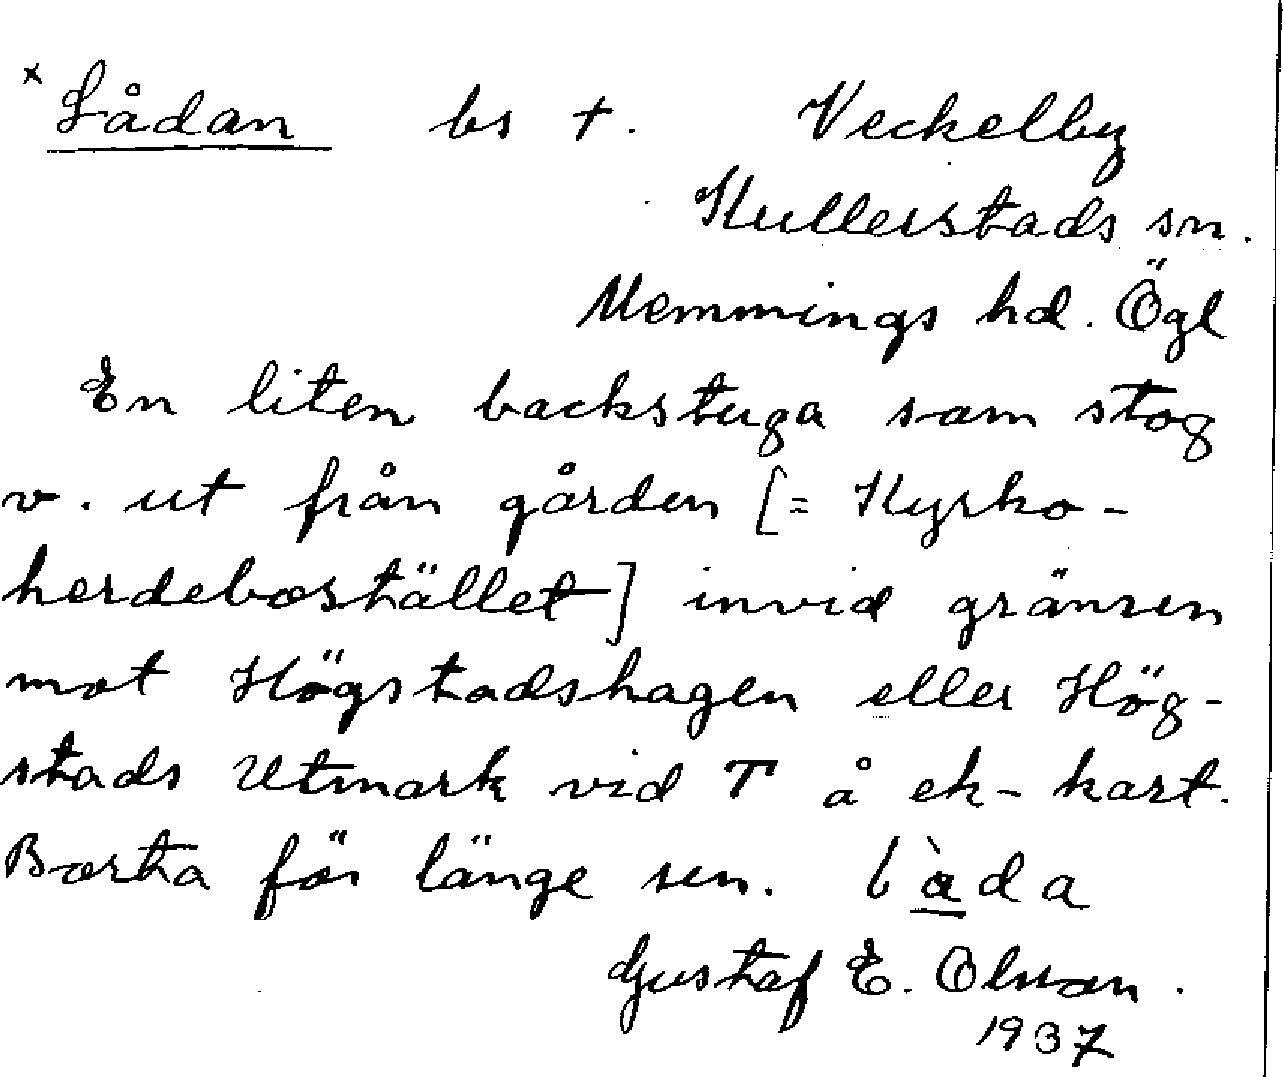 × Lådan bs †. Veckelby
Kullerstads sn.
Memmings hd. Ögl
En liten backstuga som stog
v. ut från gården [= Kyrko-
herdebostället] invid gränsen
mot Högstadshagen eller Hög-
stads Utmark vid T å ek-kart.
Borta för länge sen. l àda
Gustaf E. Olsson.
1937